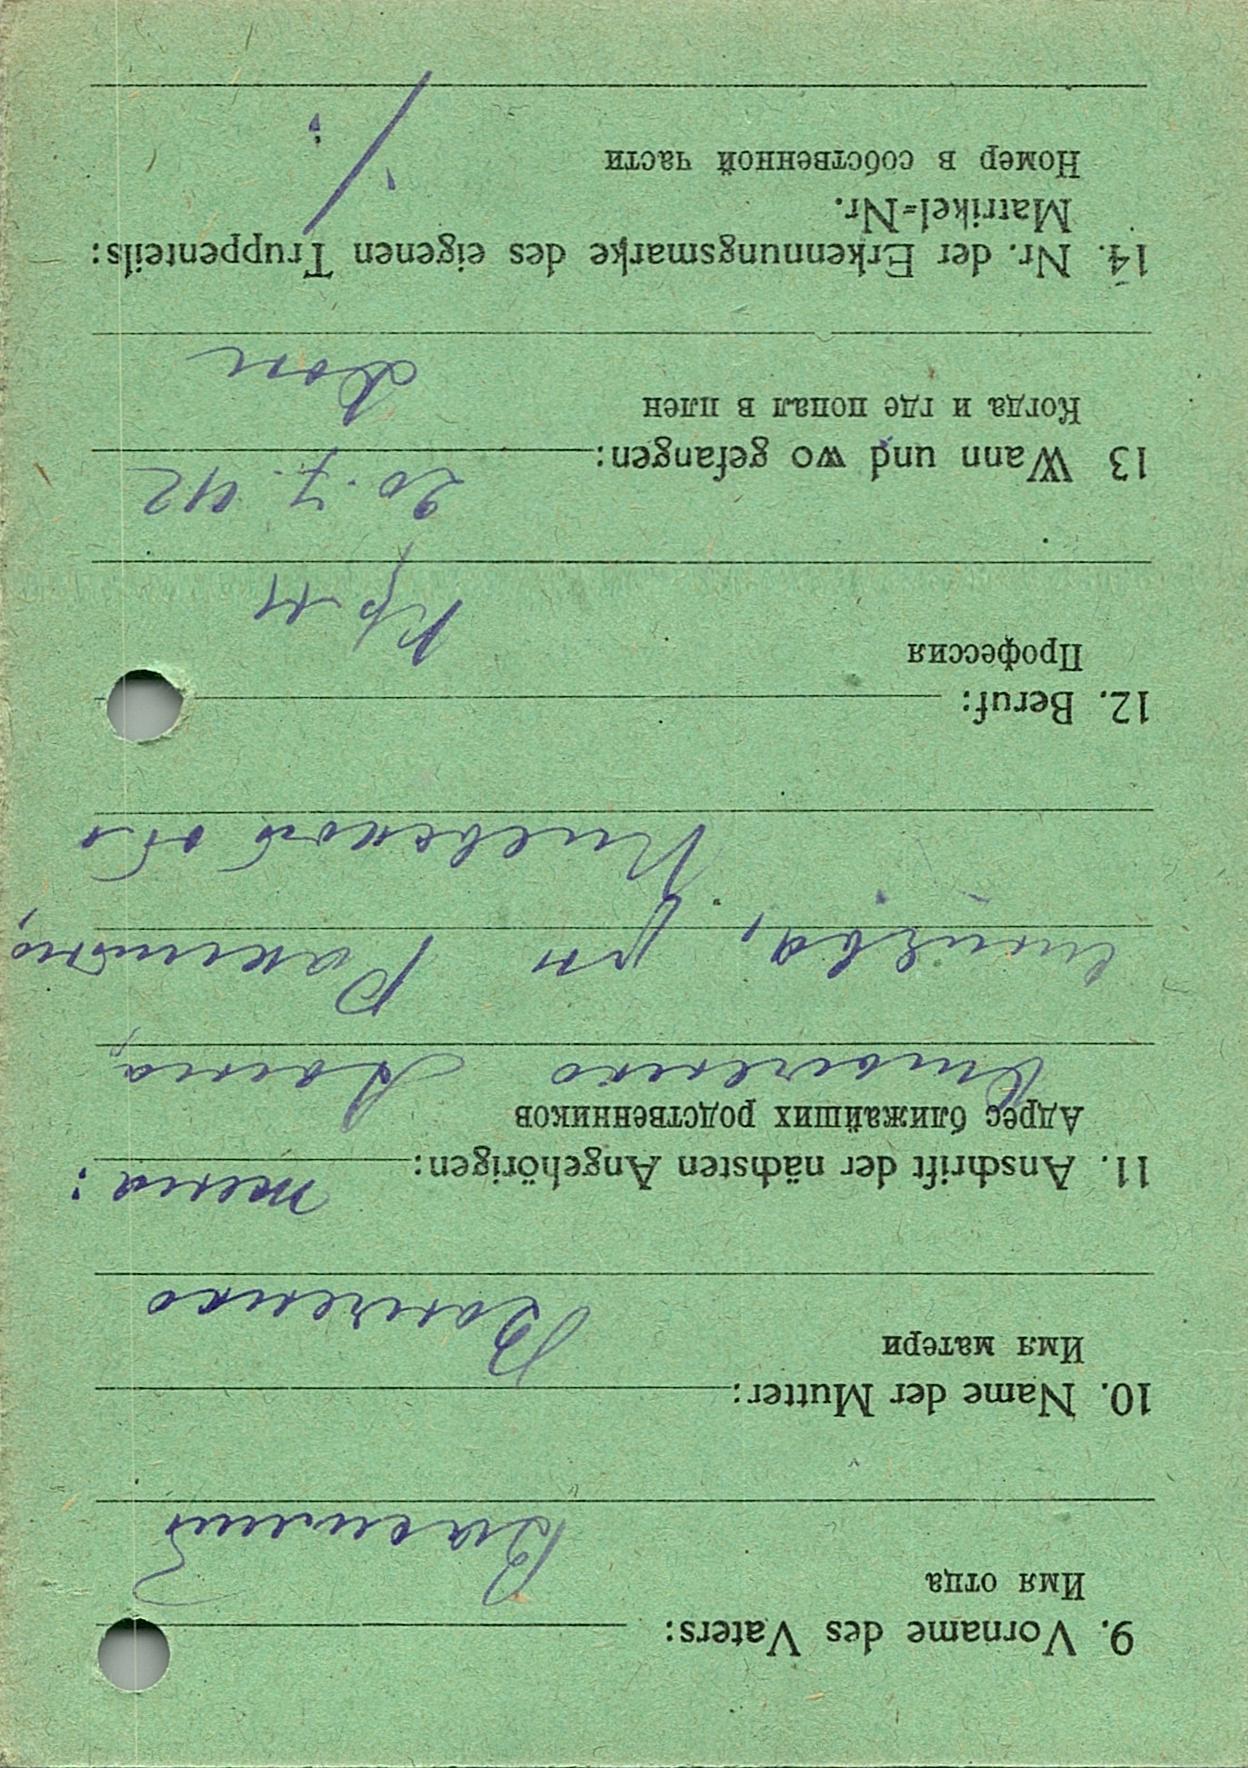 9. Vorname des Vaters:
Имя отца
Василий
10. Name der Mutter:
Имя матери
11. Anschrift der nächsten Angehörigen: жена:
Адрес ближайших родственников
Анна,
рн
Киевской обл
12. Beruf:
Профессия
13 Wann und wo gefangen: 20.7.42
Когда и где попал в плен
Дон
14. Nr. der Erkennungsmarke des eigenen Truppenteils:
Matrikel=Nr.
Номер в собственной части